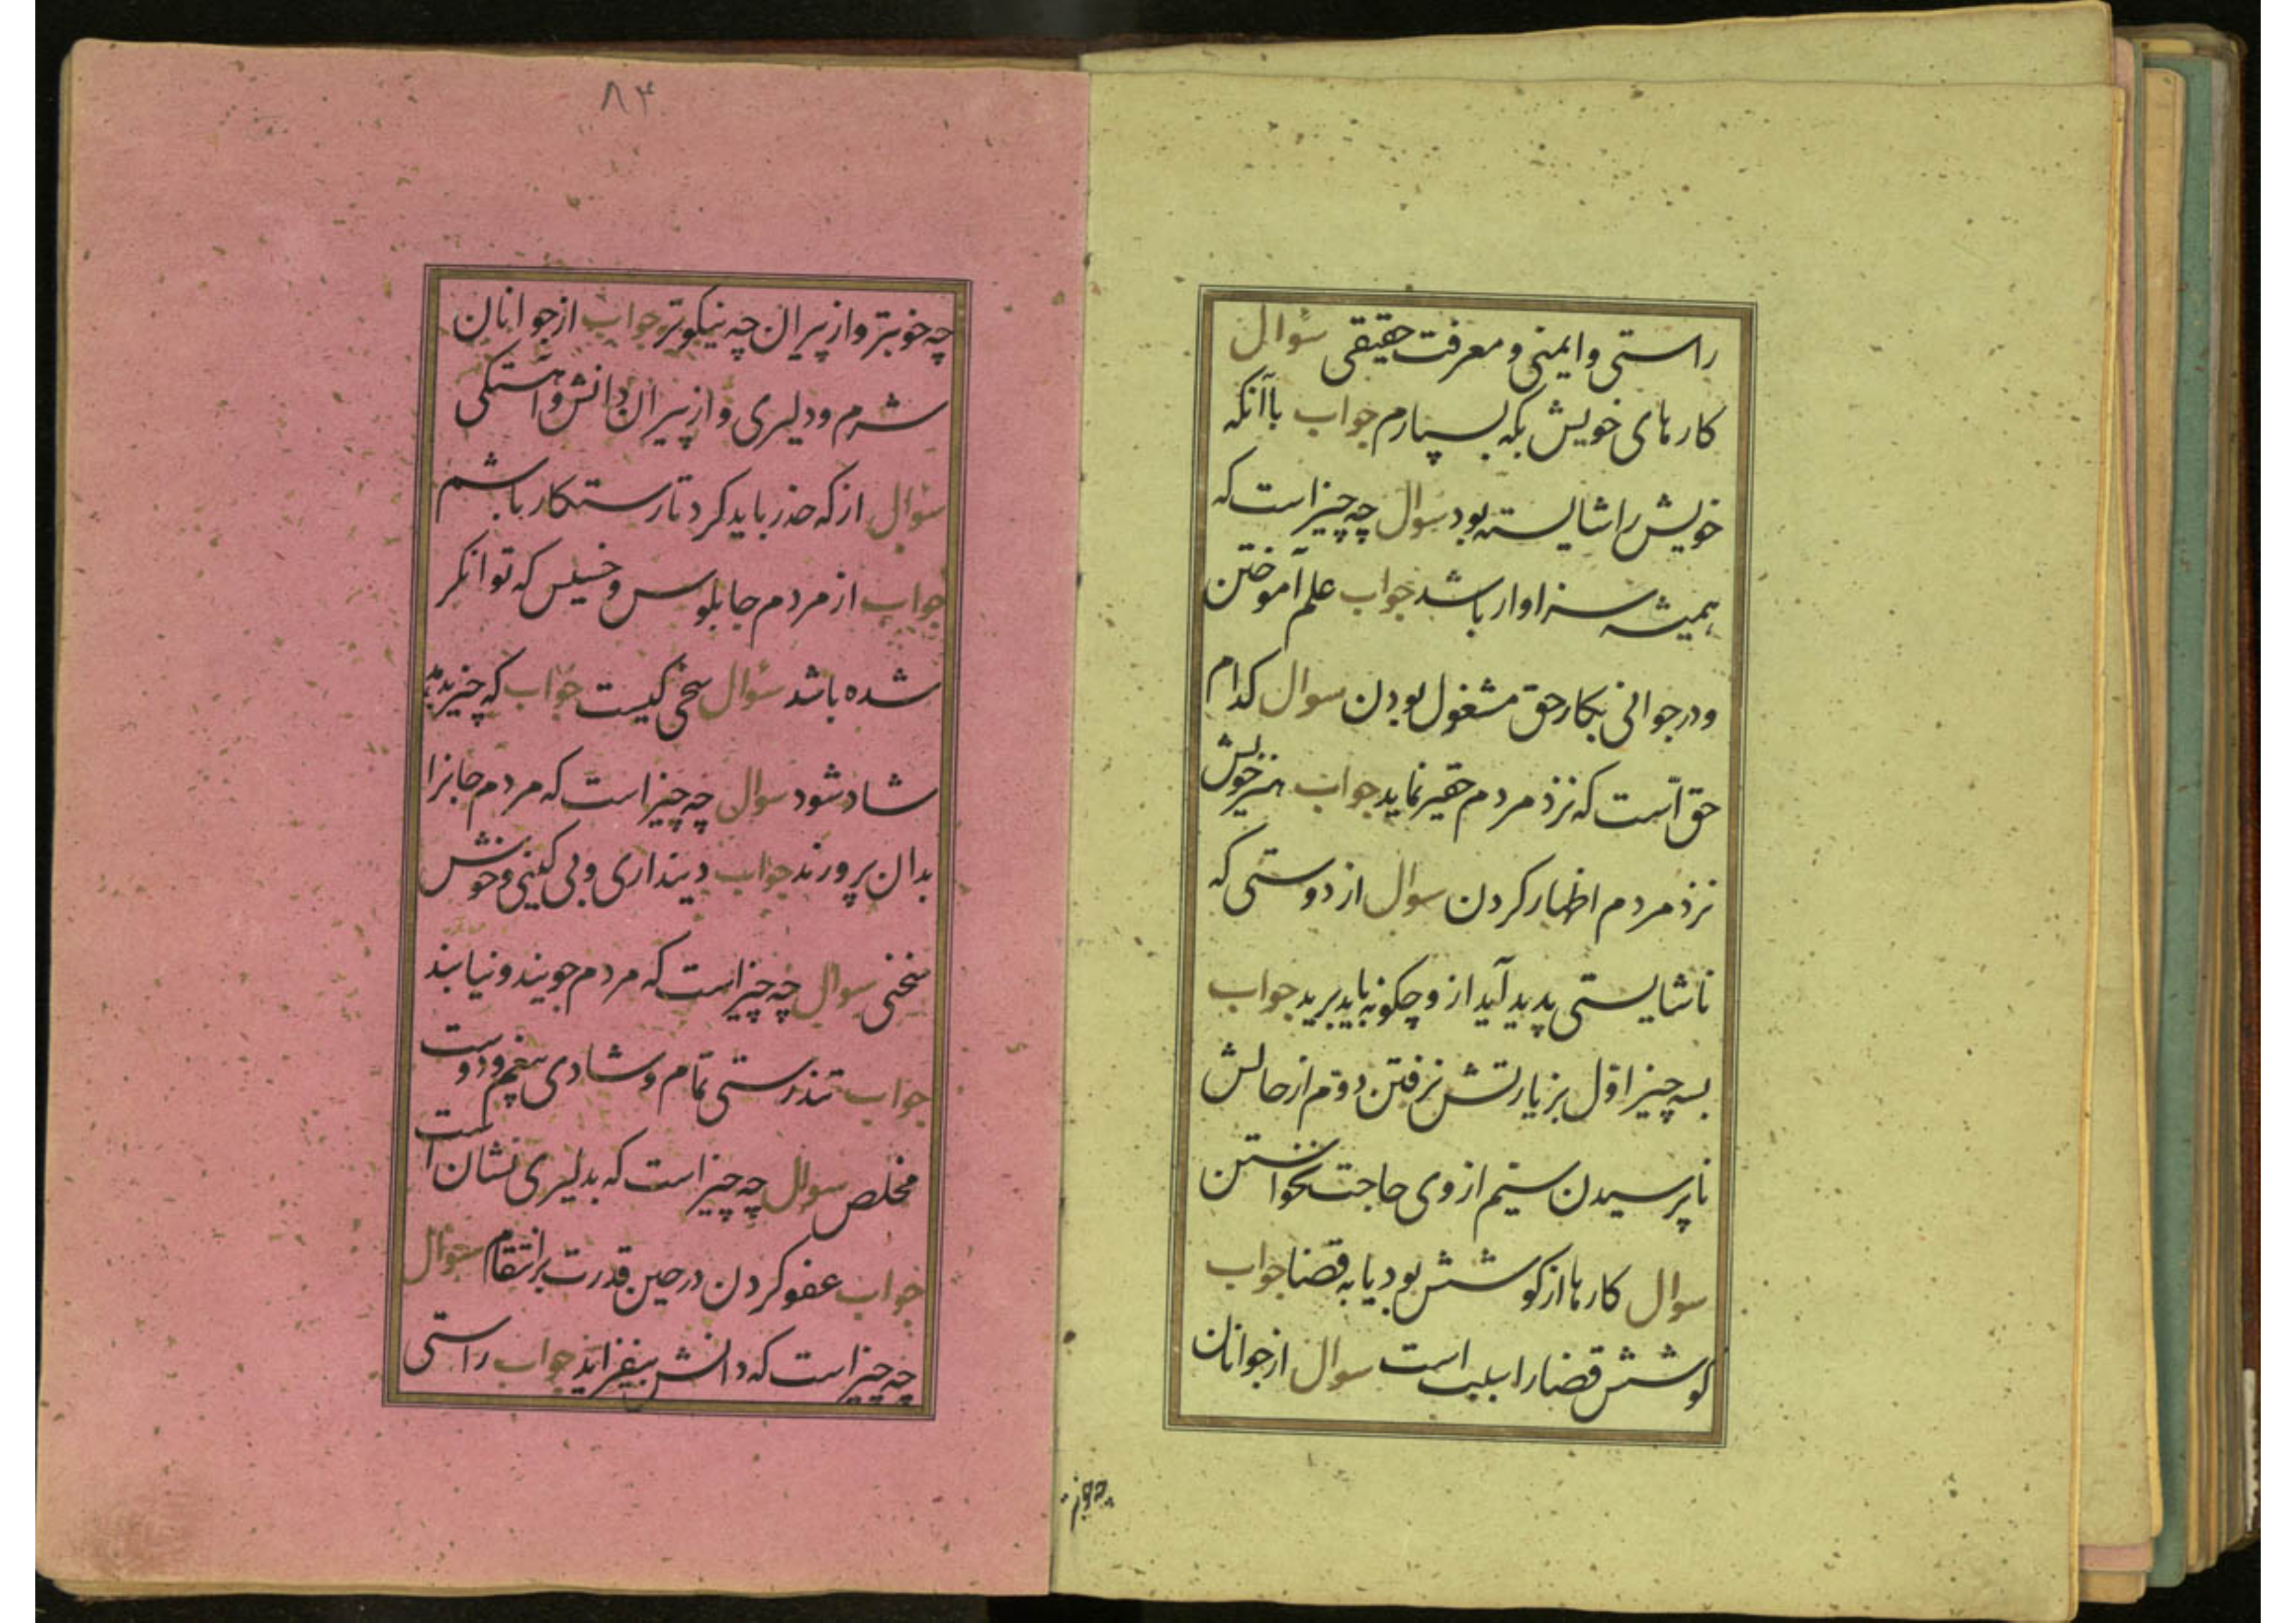 راستی و ایمنی و معرفت حقیقی سؤال
کارهای خویش بکه بسپارم جواب باآنکه
خویش را شایسته بود سوال چه چیز است که
همیشه سزاوار باشد جواب علم آموختن
و در جوانی بکار حق مشغول بودن سوال کدام
حق است که نزد مردم حقیر نماید جواب هنر خویش
نزد مردم اظهار کردن سوال از دوستی که
ناشایستی پدید آید ازو چگونه باید برید جواب
بسه چیز اوّل بزیارتش نرفتن دوّم از حالش
ناپرسیدن سیّم از وی حاجت نخواستن
سوال کارها از کوشش بود یا به قضا جواب
کوشش قضا را سبب است سوال از جوانان
چه خوبتر
۸۴
چه خوبتر و از پیران چه نیکوتر جواب از جوانان
شرم و دلیری و از پیران دانش و آهستگی
سؤال از که حذر باید کرد تا رستکار باشم
جواب از مردم چابلوس و خسیس که توانگر
شده باشد سؤال سخی کیست جواب که چیز بدهد
شاد شود سوال چه چیز است که مردم جانرا
بدان پرورند جواب دینداری و بی کینی و خوش
سخنی سوال چه چیز است که مردم جویند و نیابند
جواب تندرستی تمام و شادی بیغم و دوست
مخلص سوال چه چیز است که بدلیری نشان است
جواب عفو کردن در حین قدرت بر انتقام سؤال
چه چیز است که دانش بیفزاید جواب راستی